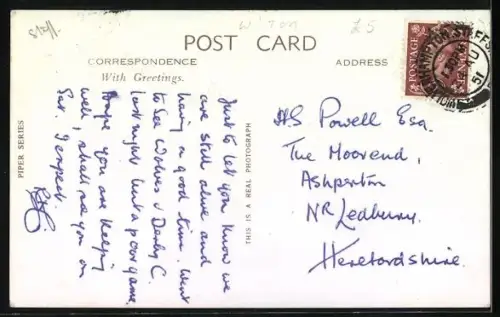 W'TON
£5
POST CARD
CORRESPONDENCE
ADDRESS
With Greetings.
Just to let you know we
are still alive and
having a good time. Went
to see Wolves v Derby C.
last night but a poor game.
Hope you are keeping
well, shall see you on
Sat. I expect.
PIPER SERIES
THIS IS A REAL PHOTOGRAPH
H.S Powell Esq.
The Moorend,
Ashperton
NR Ledbury.
Herefordshire.
POSTAGE
WOLVERHAMPTON STAFFS
AU
51